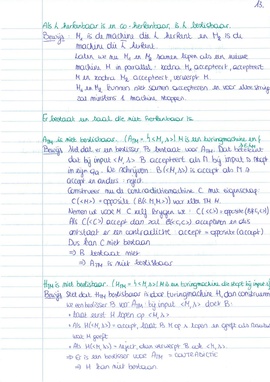 13.
Als L herkenbaar is en co-herkenbaar, is L beslisbaar.
Bewijs M₁ is de machine die L herkent en M₂ is de
machine die L̄ herkent.
Laten we nu M₁ en M₂ samen lopen als een nieuwe
machine M in parallel: zodra M₁ accepteert, accepteert
M en zodra M₂ accepteert, verwerpt M.
M₁ en M₂ kunnen niet samen accepteren en voor elke string
zal minstens 1 machine stoppen.
Er bestaat een taal die niet herkenbaar is.
A_TM is niet beslisbaar. (A_TM = {<M, s> | M is een turingmachine en
Bewijs Stel dat er een beslisser B bestaat voor A_TM. Dat betekent
dat bij input <M, s> B accepteert als M bij input s stopt
in zijn q_a. We schrijven: B(<M, s>) is accept als M s
accept en anders: reject.
Construeer nu de contradictiemachine C met eigenschap:
C(<M>) = opposite (B(<M, M>)) voor elke TM M.
Nemen we voor M C zelf krijgen we: C(<C>) = opposite (B(<C, C>))
Als C(<C>) accept dan zal B(<C, C>) accepteren en dus
ontstaat er een contradictie: accept = opposite (accept)
Dus kan C niet bestaan
⇒ B bestaat niet
⇒ A_TM is niet beslisbaar
H_TM is niet beslisbaar. (H_TM = {<M, s> | M is een turingmachine die stopt bij input s})
Bewijs Stel dat H_TM beslisbaar is door turingmachine H, dan construeren
we een beslisser B voor A_TM: bij input <M, s> doet B:
• laat eerst H lopen op <M, s>
• Als H(<M, s>) = accept, laat B M op s lopen en geeft als resultaat
wat M geeft
• Als H(<M, s>) = reject, dan verwerpt B ook <M, s>
⇒ Er is een beslisser voor A_TM = CONTRADICTIE
⇒ H kan niet bestaan